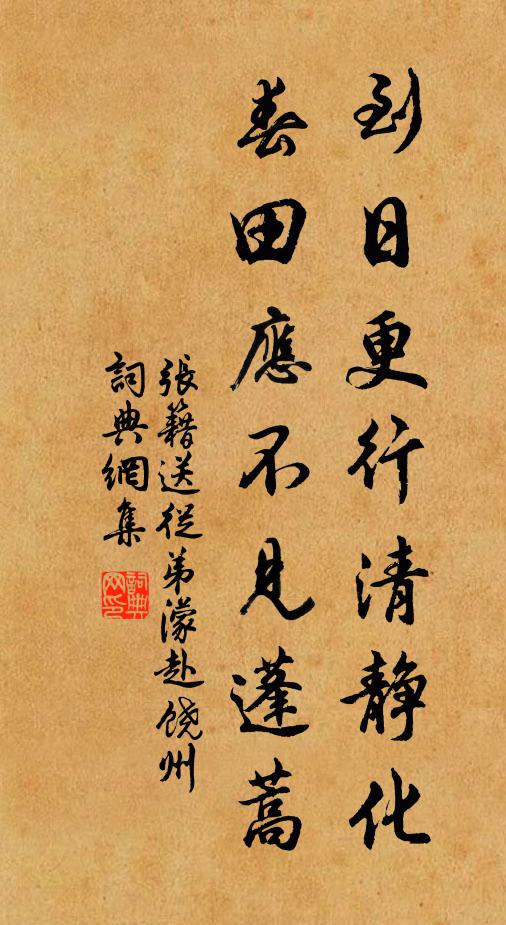 到日更行清静化
春田應不見蓬蒿
張籍送從弟濛赴饒州
詞典網集
詞典网印